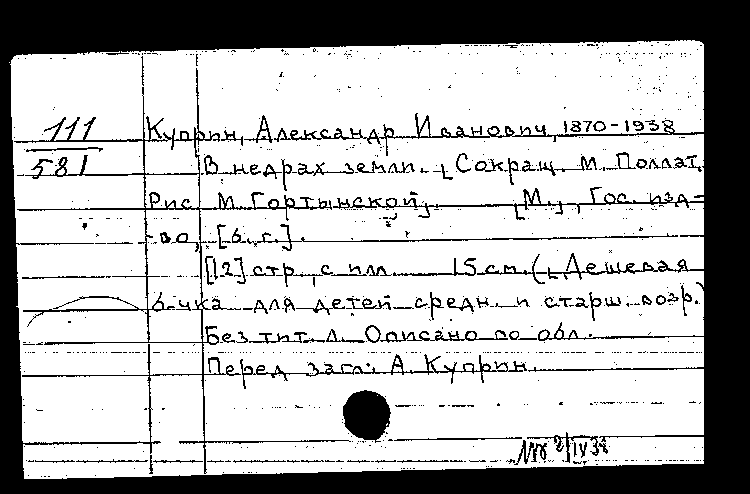 111
581
Куприн, Александр Иванович, 1870-1938
В недрах земли. [Сокращ. М. Поллат.
Рис. М. Гортынской]. [М.], Гос. изд-
-во, [б. г.].
[12] стр., с илл. 15 см. ([Дешевая
б-чка для детей средн. и старш. возр.)
Без тит. л. Описано по обл.
Перед загл.: А. Куприн.
2/IV 38